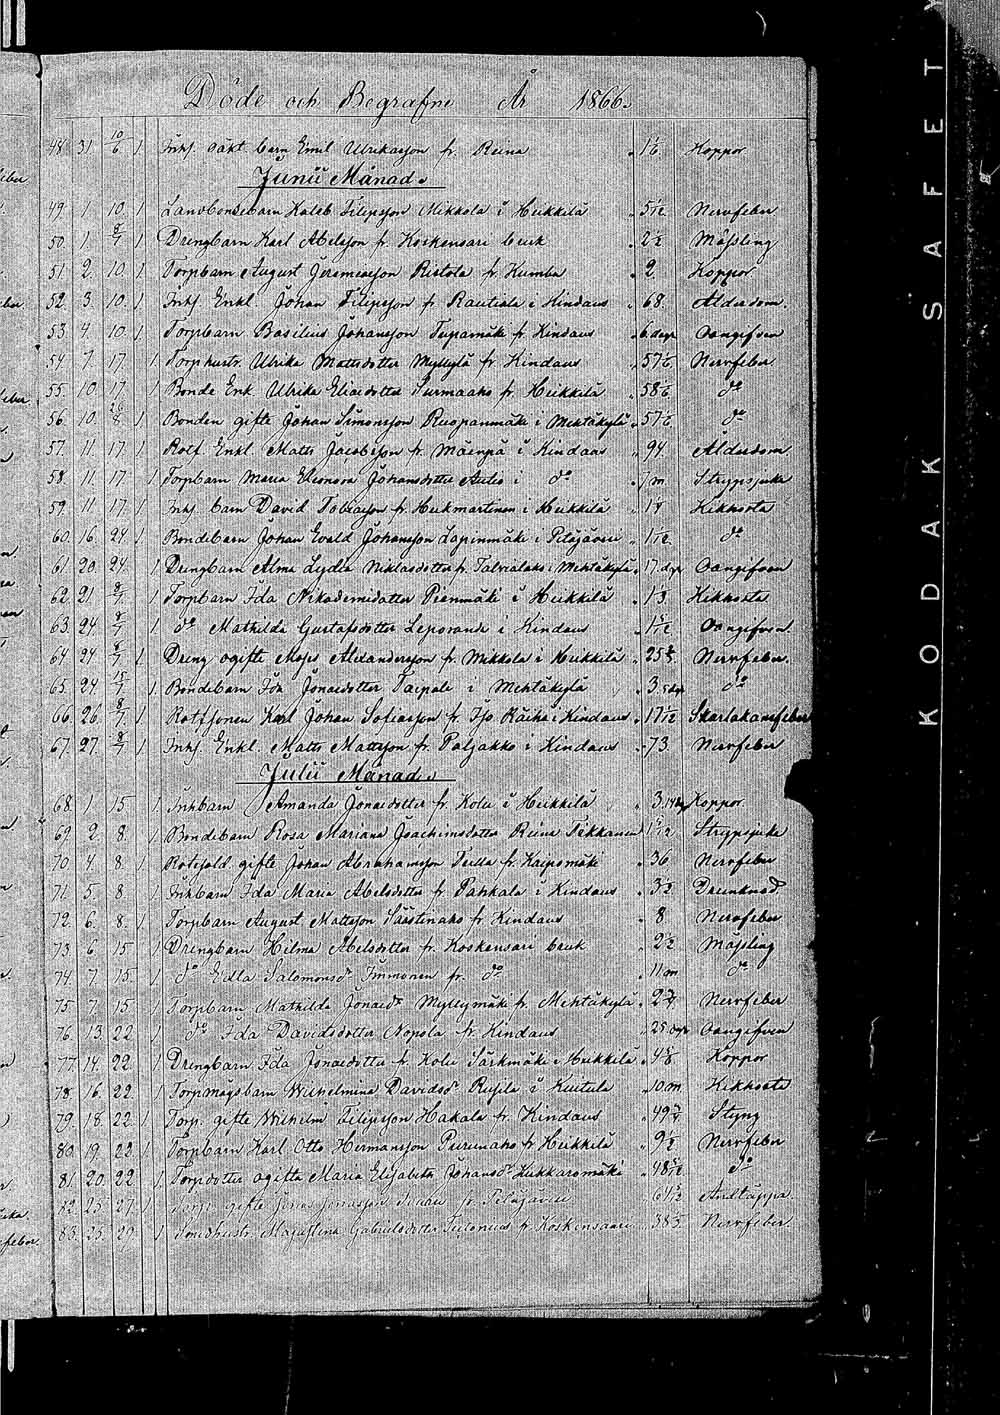 Döde och Begrafne År 1866.
48. 31. 10/6. 1. Inhs. oäkt barn Emil Ulrikasson fr. Reina 1 1/6. Koppor
Junii Månad.
49. 1. 10. 1. Landbondebarn Kaleb Filipsson Mikkola i Heikkilä 5 1/12. Nervfeber
50. 1. 8/7 1. Drengbarn Karl Abelsson fr. Koskensari bruk 2 1/2 Mässling
51. 2. 10. 1. Torpbarn August Jeremiasson Ristola fr. Kumba 2. Koppor
52. 3. 10. 1. Inhs. Enkl. Johan Filipsson fr. Rautiala i Kindaus 68. Ålderdom.
53. 4. 10. 1. Torpbarn Basilius Johansson Tupamäki fr. Kindaus 6 dagr Oangifven
54. 7. 17. 1. Torphustr. Ulrika Mattsdotter Myllylä fr. Kindaus 57 1/2. Nervfeber
55. 10. 17. 1. Bonde Enk. Ulrika Eliaedotter Surmaaho fr. Heikkilä 58 1/2. do
56. 10. 26/8 1. Bonden gifte Johan Simonsson Ruopanmäki i Mehtäkylä 57 1/2 do
57. 11. 17. 1. Rotf. Enkl. Matts Jacobsson fr. Mäenpä i Kindaus 94. Ålderdom
58. 11. 17. 1. Torpbarn Maria Eleonora Johansdotter Aulio i do 7 m Strypsjuka
59. 11. 17. 1. Inhs. barn David Tobiasson fr. Heikmartinen i Heikkilä 1 1/4 Kikhosta
60. 16. 24. 1. Bondebarn Johan Evald Johansson Lapinmäki i Pitäjävesi 1 1/12. do
61. 20. 24. 1. Drengbarn Alma Lydia Niklasdotter fr. Talvialako i Mehtäkylä 17. dgr Oangifven
62. 21. 8/7 1. Torpbarn Ida Nikodemidotter Pienmäki i Heikkilä 1 3. Kikhosta
63. 24. 8/7 1. do Mathilda Gustafsdotter Leporanda i Kindaus Oangifven.
64. 24. 8/7 1. Dreng ogifte Moses Alexandersson fr. Mikkola i Heikkilä 25 Nervfeber.
65. 24. 15/7. 1. Bondebarn Ida Jonaedotter Taipale i Mehtäkylä 3. do
66. 26. 8/7. 1. Rotfsonen Karl Johan Sofiasson fr. Iso Räihä i Kindaus 17 1/12 Skarlakansfeber
67. 27. 8/7 1. Inhs. Enkl. Matts Mattsson fr. Paljakko i Kindaus 73. Nervfeber
Julii Månad.
68. 1. 15. 1. Inhbarn Amanda Jonaedotter fr. Kolu i Heikkilä 3. Koppor.
69. 2. 8. 1. Bondebarn Rosa Mariana Joachimsdotter Reina Tikkanen Strypsjuka
70. 4. 8. 1. Rotesold gifte Johan Abrahamsson Teilla fr. Kaipomäki 36 Nervfeber
71. 5. 8. 1. Inhbarn Ida Maria Abelsdotter fr. Pahkala i Kindaus 3 1/2 Drunknad
72. 6. 8. 1. Torpbarn August Mattsson Säästinaho fr Kindaus 8 Nervfeber
73. 6. 15. 1. Drengbarn Hilma Abelsdotter fr. Koskensari bruk 2 1/2 Mässling
74. 7. 15. 1. do Edla Salomonsdr Immonen fr. do 11 m do
75. 7. 15. 1. Torpbarn Mathilda Jonaedr Myllymäki fr. Mehtäkylä 2 3/4 Nervfeber
76. 13. 22. 1. do Ida Davidsdotter Nopola fr. Kindaus 25. dgr Oangifven
77. 14. 22. 1. Drengbarn Ida Jonaedotter fr. Kolu Särkmäki i Heikkilä Koppor
78. 16. 22. 1. Torpmågsbarn Wilhelmina Davidsdr Rusila i Kuitula 10 m Kikhosta
79. 18. 22. 1. Torp. gifte Wilhelm Filipsson Hakala fr. Kindaus 49 3/4 Styng
80. 19. 22. 1. Torpbarn Karl Otto Hermansson Peurunaho fr Heikkilä 9 1/2 Nervfeber
81. 20. 22. 1. Torpdotter ogifta Maria Elisabeth Johansdr Kukkaromäki 48 do
82. 25. 27. 1. Torp. gifte Jonas Jonasson fr. Pitäjävesi 61 Andtäppa
83. 25. 29. 1. Smedhustr. Maja Stina Gabrielsdotter fr Koskensaari 38 Nervfeber.
KODAK SAFETY